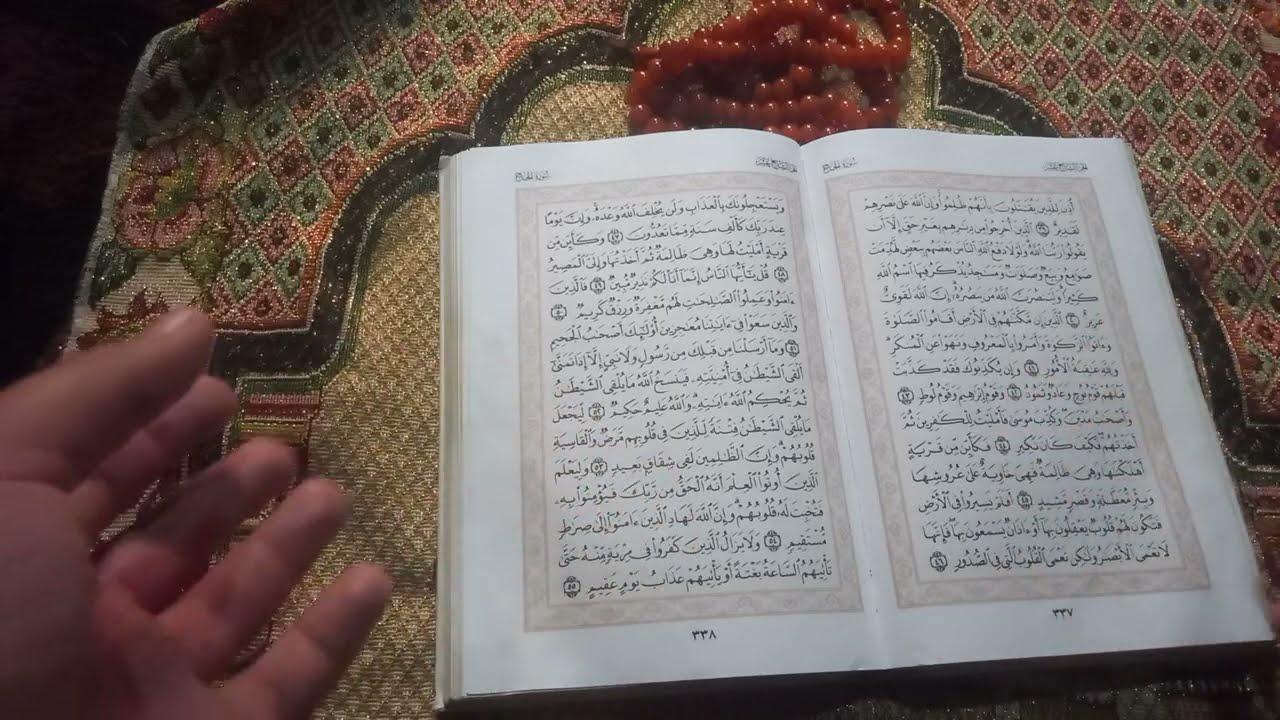 الجزء السابع عشر
سورة الحج
أُذِنَ لِلَّذِينَ يُقَٰتَلُونَ بِأَنَّهُمْ ظُلِمُوا۟ وَإِنَّ ٱللَّهَ عَلَىٰ نَصْرِهِمْ
لَقَدِيرٌ ٣٩ ٱلَّذِينَ أُخْرِجُوا۟ مِن دِيَٰرِهِم بِغَيْرِ حَقٍّ إِلَّآ أَن
يَقُولُوا۟ رَبُّنَا ٱللَّهُ وَلَوْلَا دَفْعُ ٱللَّهِ ٱلنَّاسَ بَعْضَهُم بِبَعْضٍ لَّهُدِّمَتْ
صَوَٰمِعُ وَبِيَعٌ وَصَلَوَٰتٌ وَمَسَٰجِدُ يُذْكَرُ فِيهَا ٱسْمُ ٱللَّهِ
كَثِيرًا وَلَيَنصُرَنَّ ٱللَّهُ مَن يَنصُرُهُۥٓ إِنَّ ٱللَّهَ لَقَوِىٌّ
عَزِيزٌ ٤٠ ٱلَّذِينَ إِن مَّكَّنَّٰهُمْ فِى ٱلْأَرْضِ أَقَامُوا۟ ٱلصَّلَوٰةَ
وَءَاتَوُا۟ ٱلزَّكَوٰةَ وَأَمَرُوا۟ بِٱلْمَعْرُوفِ وَنَهَوْا۟ عَنِ ٱلْمُنكَرِ
وَلِلَّهِ عَٰقِبَةُ ٱلْأُمُورِ ٤١ وَإِن يُكَذِّبُوكَ فَقَدْ كَذَّبَتْ
قَبْلَهُمْ قَوْمُ نُوحٍ وَعَادٌ وَثَمُودُ ٤٢ وَقَوْمُ إِبْرَٰهِيمَ وَقَوْمُ لُوطٍ ٤٣
وَأَصْحَٰبُ مَدْيَنَ وَكُذِّبَ مُوسَىٰ فَأَمْلَيْتُ لِلْكَٰفِرِينَ ثُمَّ
أَخَذْتُهُمْ فَكَيْفَ كَانَ نَكِيرِ ٤٤ فَكَأَيِّن مِّن قَرْيَةٍ
أَهْلَكْنَٰهَا وَهِىَ ظَالِمَةٌ فَهِىَ خَاوِيَةٌ عَلَىٰ عُرُوشِهَا
وَبِئْرٍ مُّعَطَّلَةٍ وَقَصْرٍ مَّشِيدٍ ٤٥ أَفَلَمْ يَسِيرُوا۟ فِى ٱلْأَرْضِ
فَتَكُونَ لَهُمْ قُلُوبٌ يَعْقِلُونَ بِهَآ أَوْ ءَاذَانٌ يَسْمَعُونَ بِهَا فَإِنَّهَا
لَا تَعْمَى ٱلْأَبْصَٰرُ وَلَٰكِن تَعْمَى ٱلْقُلُوبُ ٱلَّتِى فِى ٱلصُّدُورِ ٤٦
٣٣٧
الجزء السابع عشر
سورة الحج
وَيَسْتَعْجِلُونَكَ بِٱلْعَذَابِ وَلَن يُخْلِفَ ٱللَّهُ وَعْدَهُۥ وَإِنَّ يَوْمًا
عِندَ رَبِّكَ كَأَلْفِ سَنَةٍ مِّمَّا تَعُدُّونَ ٤٧ وَكَأَيِّن مِّن
قَرْيَةٍ أَمْلَيْتُ لَهَا وَهِىَ ظَالِمَةٌ ثُمَّ أَخَذْتُهَا وَإِلَىَّ ٱلْمَصِيرُ
٤٨ قُلْ يَٰٓأَيُّهَا ٱلنَّاسُ إِنَّمَآ أَنَا۠ لَكُمْ نَذِيرٌ مُّبِينٌ ٤٩ فَٱلَّذِينَ
ءَامَنُوا۟ وَعَمِلُوا۟ ٱلصَّٰلِحَٰتِ لَهُم مَّغْفِرَةٌ وَرِزْقٌ كَرِيمٌ ٥٠
وَٱلَّذِينَ سَعَوْا۟ فِىٓ ءَايَٰتِنَا مُعَٰجِزِينَ أُو۟لَٰٓئِكَ أَصْحَٰبُ ٱلْجَحِيمِ
٥١ وَمَآ أَرْسَلْنَا مِن قَبْلِكَ مِن رَّسُولٍ وَلَا نَبِىٍّ إِلَّآ إِذَا تَمَنَّىٰٓ
أَلْقَى ٱلشَّيْطَٰنُ فِىٓ أُمْنِيَّتِهِۦ فَيَنسَخُ ٱللَّهُ مَا يُلْقِى ٱلشَّيْطَٰنُ
ثُمَّ يُحْكِمُ ٱللَّهُ ءَايَٰتِهِۦ وَٱللَّهُ عَلِيمٌ حَكِيمٌ ٥٢ لِّيَجْعَلَ
مَا يُلْقِى ٱلشَّيْطَٰنُ فِتْنَةً لِّلَّذِينَ فِى قُلُوبِهِم مَّرَضٌ وَٱلْقَاسِيَةِ
قُلُوبُهُمْ وَإِنَّ ٱلظَّٰلِمِينَ لَفِى شِقَاقٍۭ بَعِيدٍ ٥٣ وَلِيَعْلَمَ
ٱلَّذِينَ أُوتُوا۟ ٱلْعِلْمَ أَنَّهُ ٱلْحَقُّ مِن رَّبِّكَ فَيُؤْمِنُوا۟ بِهِۦ
فَتُخْبِتَ لَهُۥ قُلُوبُهُمْ وَإِنَّ ٱللَّهَ لَهَادِ ٱلَّذِينَ ءَامَنُوٓا۟ إِلَىٰ صِرَٰطٍ
مُّسْتَقِيمٍ ٥٤ وَلَا يَزَالُ ٱلَّذِينَ كَفَرُوا۟ فِى مِرْيَةٍ مِّنْهُ حَتَّىٰ
تَأْتِيَهُمُ ٱلسَّاعَةُ بَغْتَةً أَوْ يَأْتِيَهُمْ عَذَابُ يَوْمٍ عَقِيمٍ ٥٥
٣٣٨